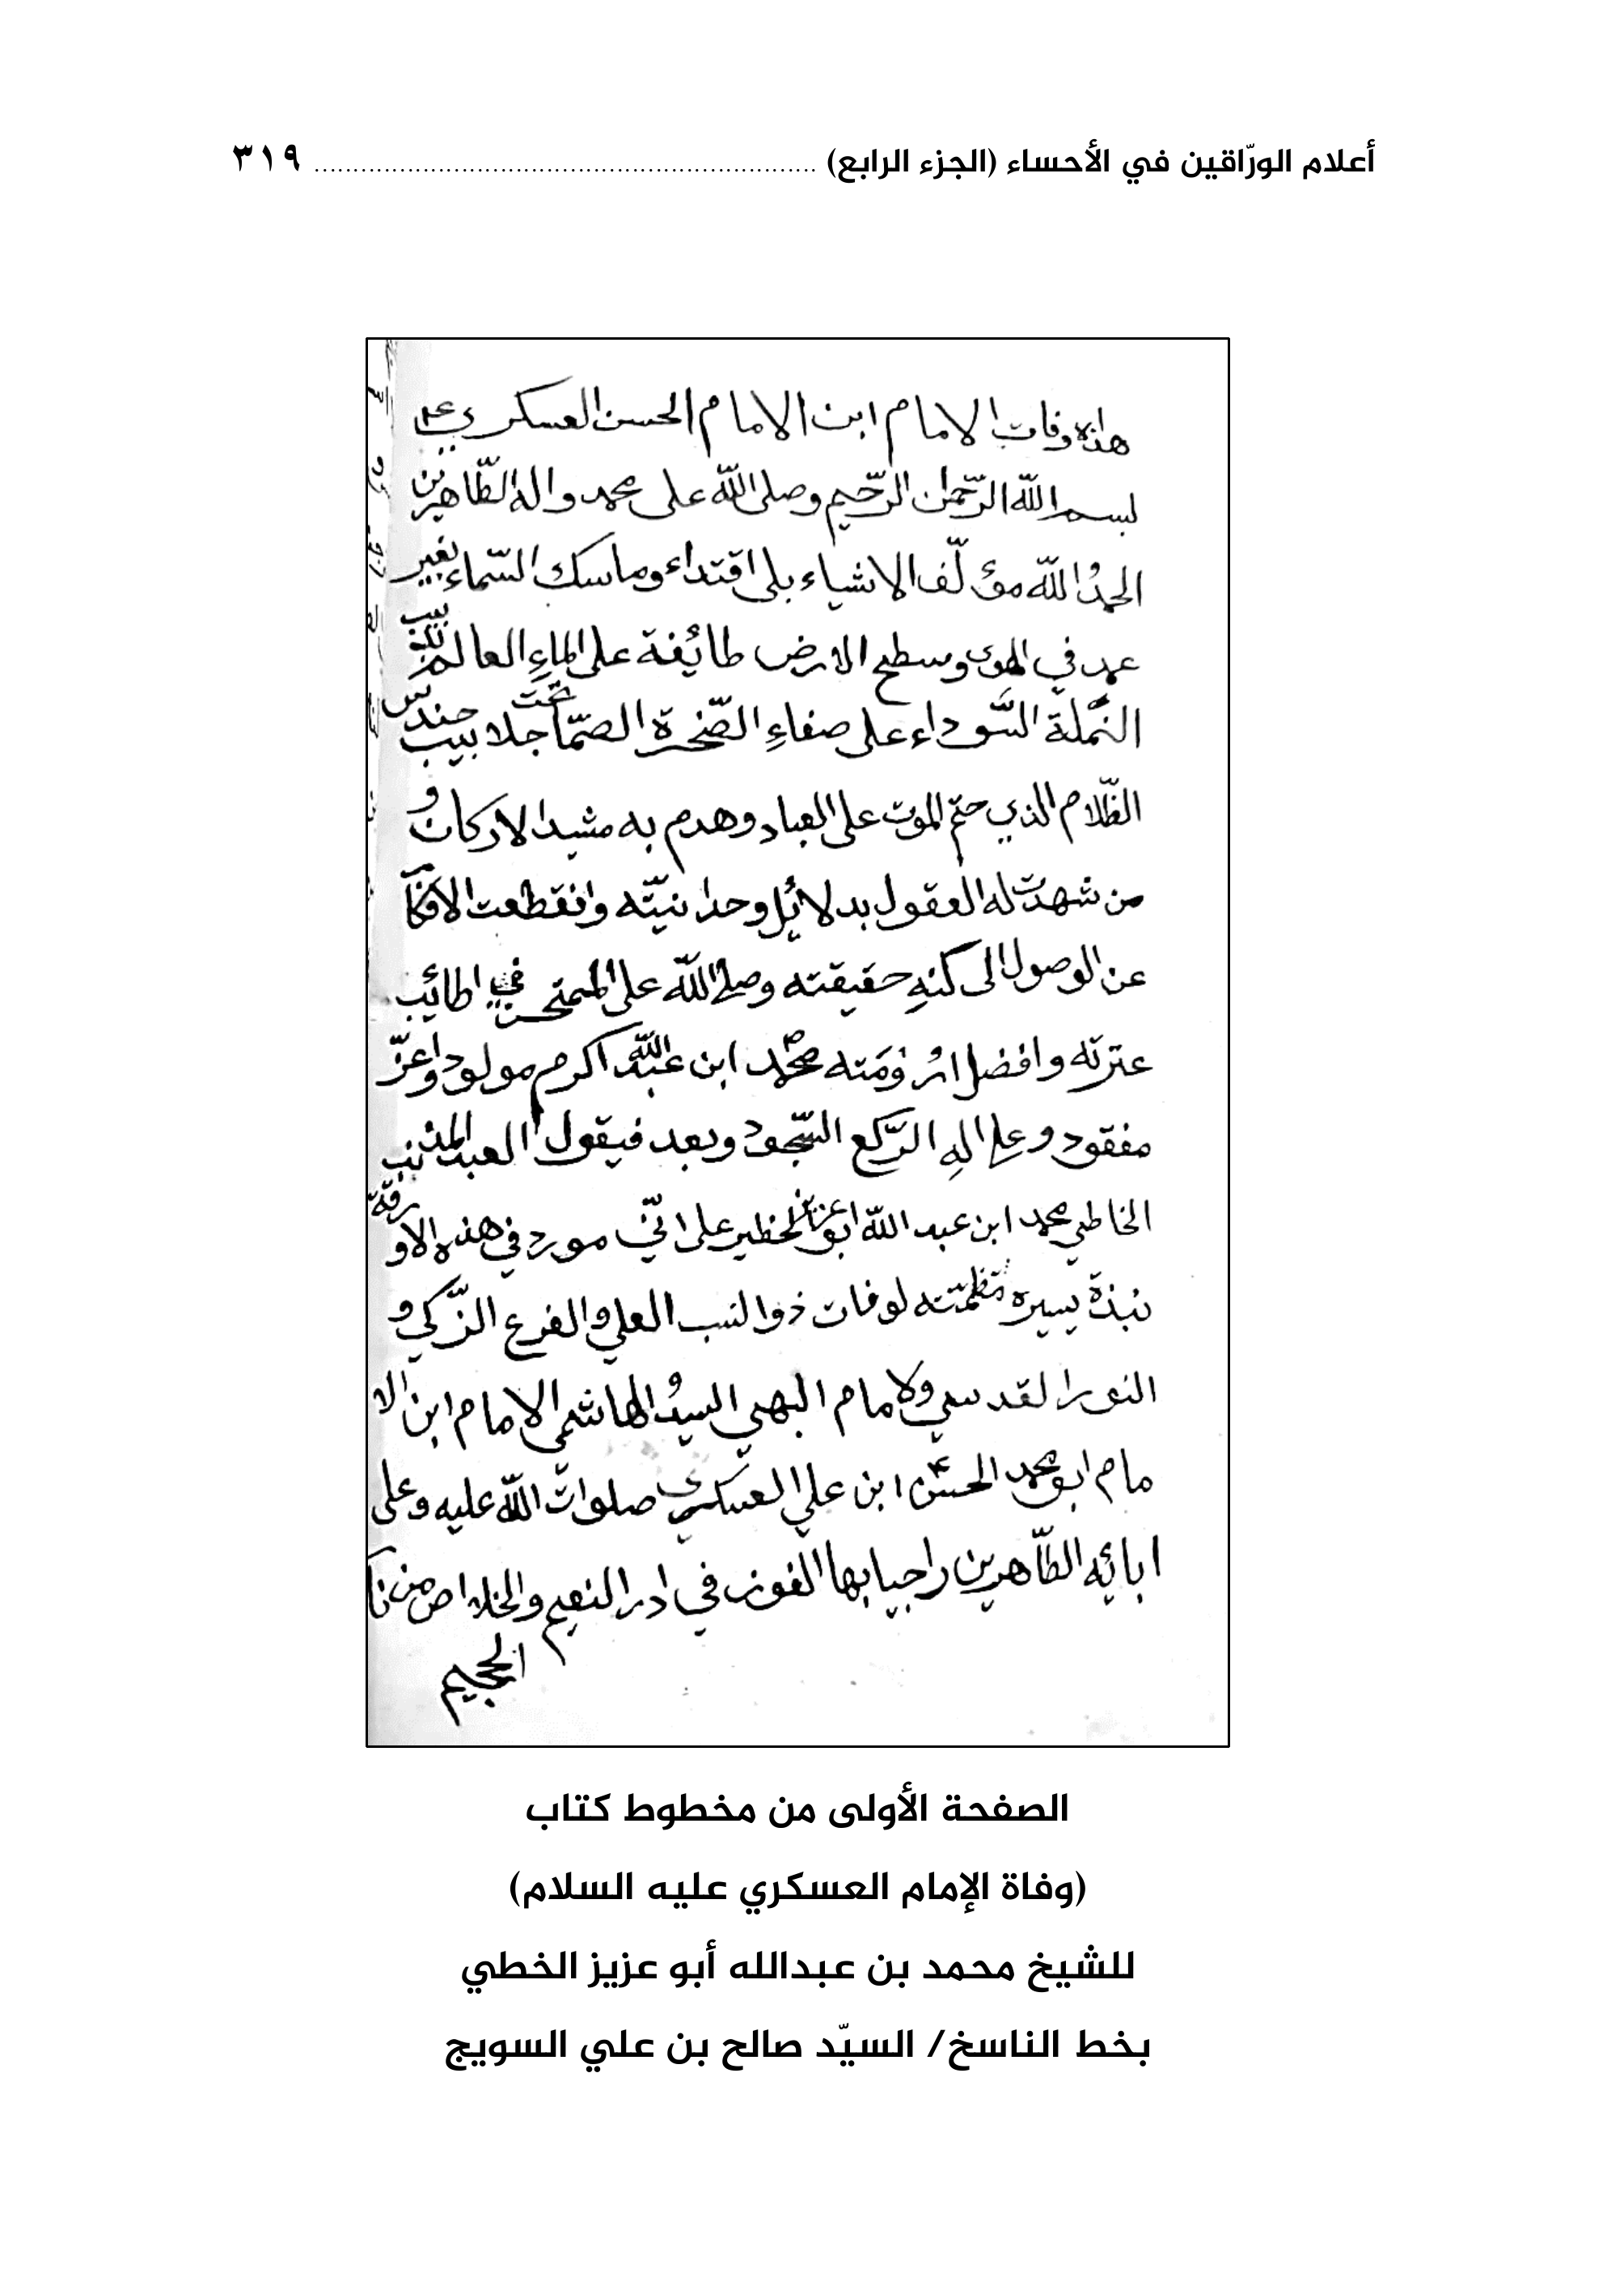 أعلام الورّاقين في الأحساء (الجزء الرابع) ................................................................ ٣١٩
هذه وفات الامام ابن الامام الحسن العسكري ع
بسم الله الرّحمن الرّحيم وصلى الله على محمد واله الطّاهرين
الحمدُ الله مؤلّف الاشياء بلى اقتداء وماسك السّماء بغير
عمد في الهوى وسطح الارض طائفة على الماءِ العالم بدبيب
النّملة السّوداء على صفاءِ الصّخرة الصمّا تحت جلابيب حندس
الظّلام الذي حتم الموت على العباد وهدم به مشيد الاركان و
من شهدت له العقول بدلائل وحدانيّته وانقطعت الافكا
عن الوصول الى كنهِ حقيقته وصلى الله على في اطائب
عترته وافضل ارُومَته محمّد ابن عبد الله اكرم مولود واعزّ
مفقود وعلى الهِ الرّكع السّجود وبعد فيقول العبد المذنب
الخاطي محمد ابن عبد الله ابو عزيز الخطي على انّي مورد في هذه الاورقة
نبذة يسيره نظمته لوفات ذو النسب العلي والفرع الزّكي و
النور القدسي ولامام البهي السيدُ الهاشمي الامام ابن الا
مام ابو محمد الحسن ع ابن علي العسكري صلوات الله عليه وعلى
ابائه الطّاهرين راجيا بها الفوز في دار النعيم والخلاص من نا
الجحيم
الصفحة الأولى من مخطوط كتاب
(وفاة الإمام العسكري عليه السلام)
للشيخ محمد بن عبدالله أبو عزيز الخطي
بخط الناسخ/ السيّد صالح بن علي السويج